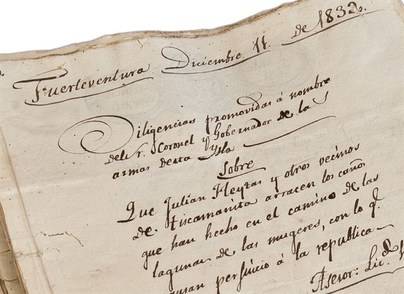 Fuerteventura Diciembre 11. de 1832.
Diligencias promovidas á nombre
del Sr. Coronel y Gobernador de las
armas de esta Ysla
Sobre
Que Julian Fleytas y otros vecinos
de Tiscamanita arracen los caños
que han hecho en el camino de las
lagunas de las mugeres, con lo q.
perjuicio á la republica
Asesor: Lic.